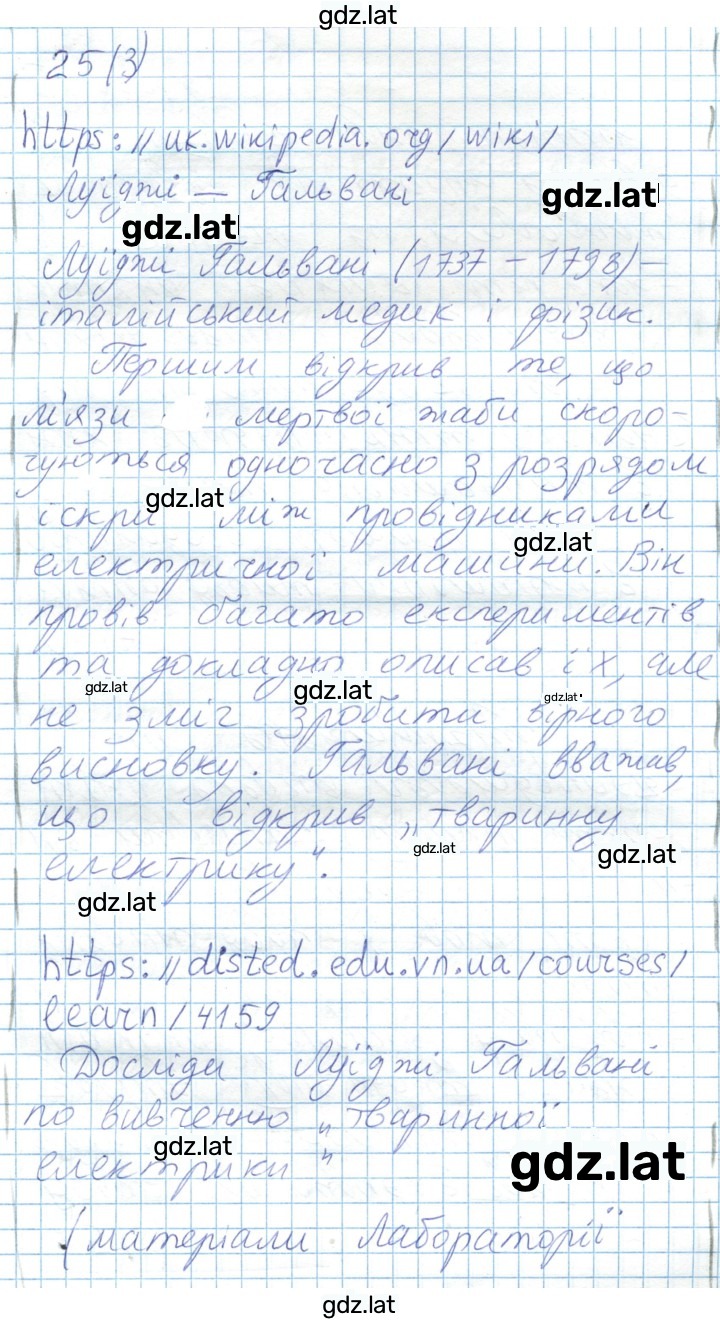 gdz.lat
25(3)
https://uk.wikipedia.org/wiki/
Луїджі_Гальвані
gdz.lat
gdz.lat
Луїджі Гальвані (1737 – 1798) –
італійський медик і фізик.
Першим відкрив те, що
м'язи мертвої жаби скоро-
чуються одночасно з розрядом
gdz.lat
іскри між провідниками
gdz.lat
електричної машини. Він
провів багато експериментів
та докладно описав їх, але
gdz.lat
gdz.lat
gdz.lat
не зміг зробити вірного
висновку. Гальвані вважав,
що відкрив „тваринну
gdz.lat
gdz.lat
електрику".
gdz.lat
https://disted.edu.vn.ua/courses/
learn/4159
Досліди Луїджі Гальвані
по вивченню „тваринної
gdz.lat
електрики"
gdz.lat
(матеріали Лабораторії
gdz.lat